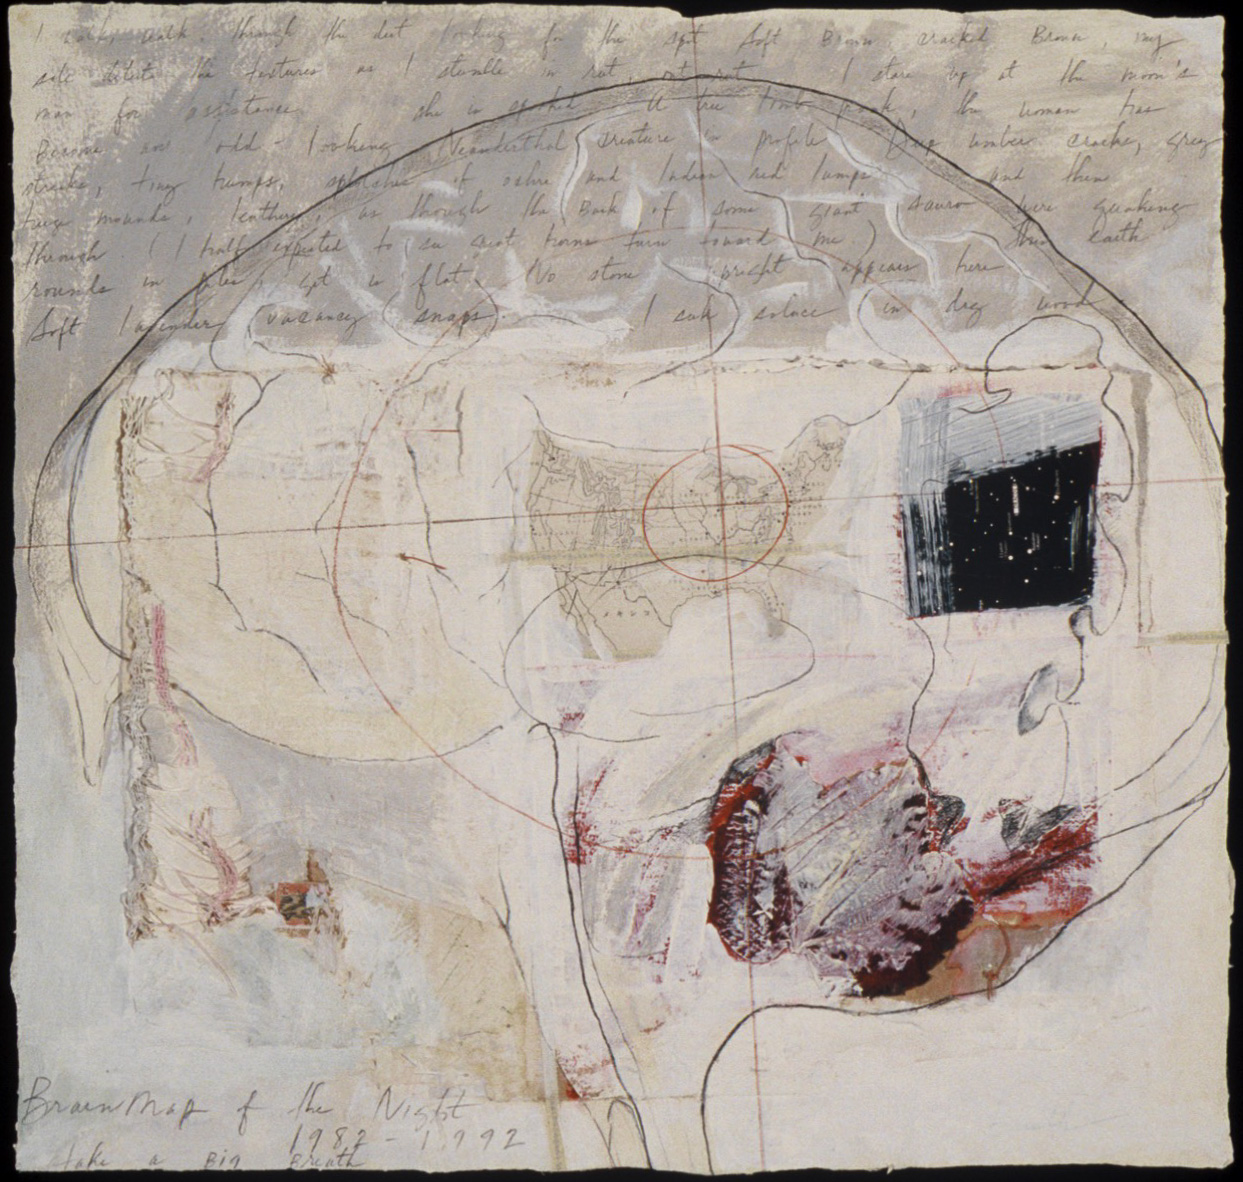 I walk, walk. through the dust looking for the spot soft Brown, cracked Brown, my
sole the textures as I stumble in rut, out rut I stare up at the moon's
man for assistance she is spooked A tree limb the woman has
Become an odd-looking Neanderthal creature in profile Deep umber cracks, grey
streaks, tiny humps, splotches of ochre and Indian red lumps and then
huge mounds, leathery, as though the Back of some giant were quaking
through. (I half expected to see great horns turn toward me.) This earth
rounds in gets flat. No stone upright appears here
Soft lavender vacancy snaps. I seek solace in dry wood
Brain Map of the Night
1982-1992
take a Big Breath